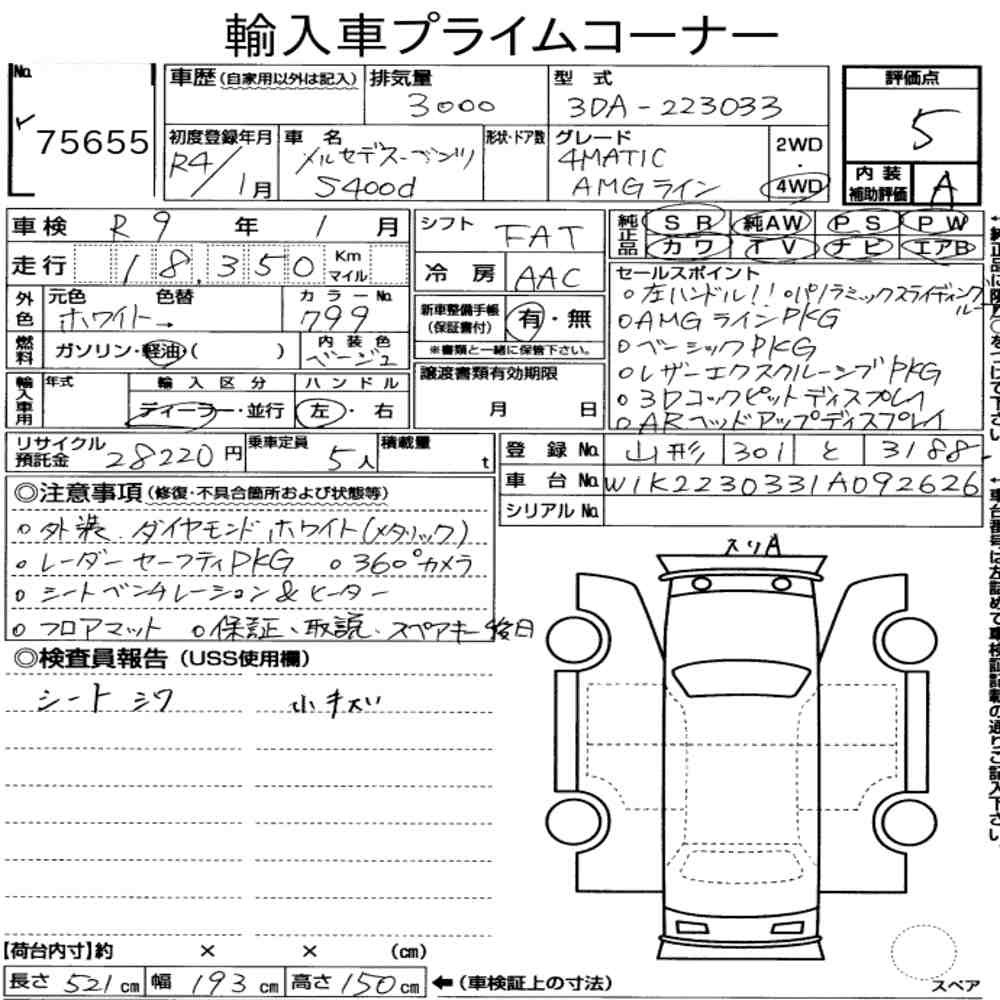 輸入車プライムコーナー
No. 75655
車歴(自家用以外は記入)
排気量 3000
型式 3DA-223033
評価点 5
初度登録年月 R4/1月
車名 メルセデス-ベンツ S400d
形状・ドア数
グレード 4MATIC AMGライン
2WD・4WD
内装補助評価 A
車検 R9年 1月
シフト FAT
純正品 SR 純AW PS PW
カワ TV ナビ エアB
走行 18,350 Km マイル
冷房 AAC
セールスポイント
○左ハンドル!! ○パノラミックスライディングルーフ
○AMGラインPKG
○ベーシックPKG
○レザーエクスクルーシブPKG
○3Dコックピットディスプレイ
○ARヘッドアップディスプレイ
外色 元色 色替 カラーNo.
ホワイト→ 799
新車整備手帳(保証書付) 有・無
※書類と一緒に保管下さい。
燃料 ガソリン・軽油・( )
内装色 ベージュ
譲渡書類有効期限
月 日
輸入車用 年式 輸入区分 ハンドル
ディーラー・並行 左・右
リサイクル預託金 28220円
乗車定員 5人
積載量 t
登録No. 山形 301 と 3188
車台No. W1K2230331A092626
シリアルNo.
◎注意事項(修復・不具合箇所および状態等)
○外装 ダイヤモンドホワイト(メタリック)
○レーダーセーフティPKG ○360°カメラ
○シートベンチレーション&ヒーター
○フロアマット ○保証、取説、スペアキー後日
◎検査員報告(USS使用欄)
シートシワ 小キズ
スリA
【荷台内寸】約 × × (cm)
長さ 521cm 幅 193cm 高さ 150cm ←(車検証上の寸法)
スペア